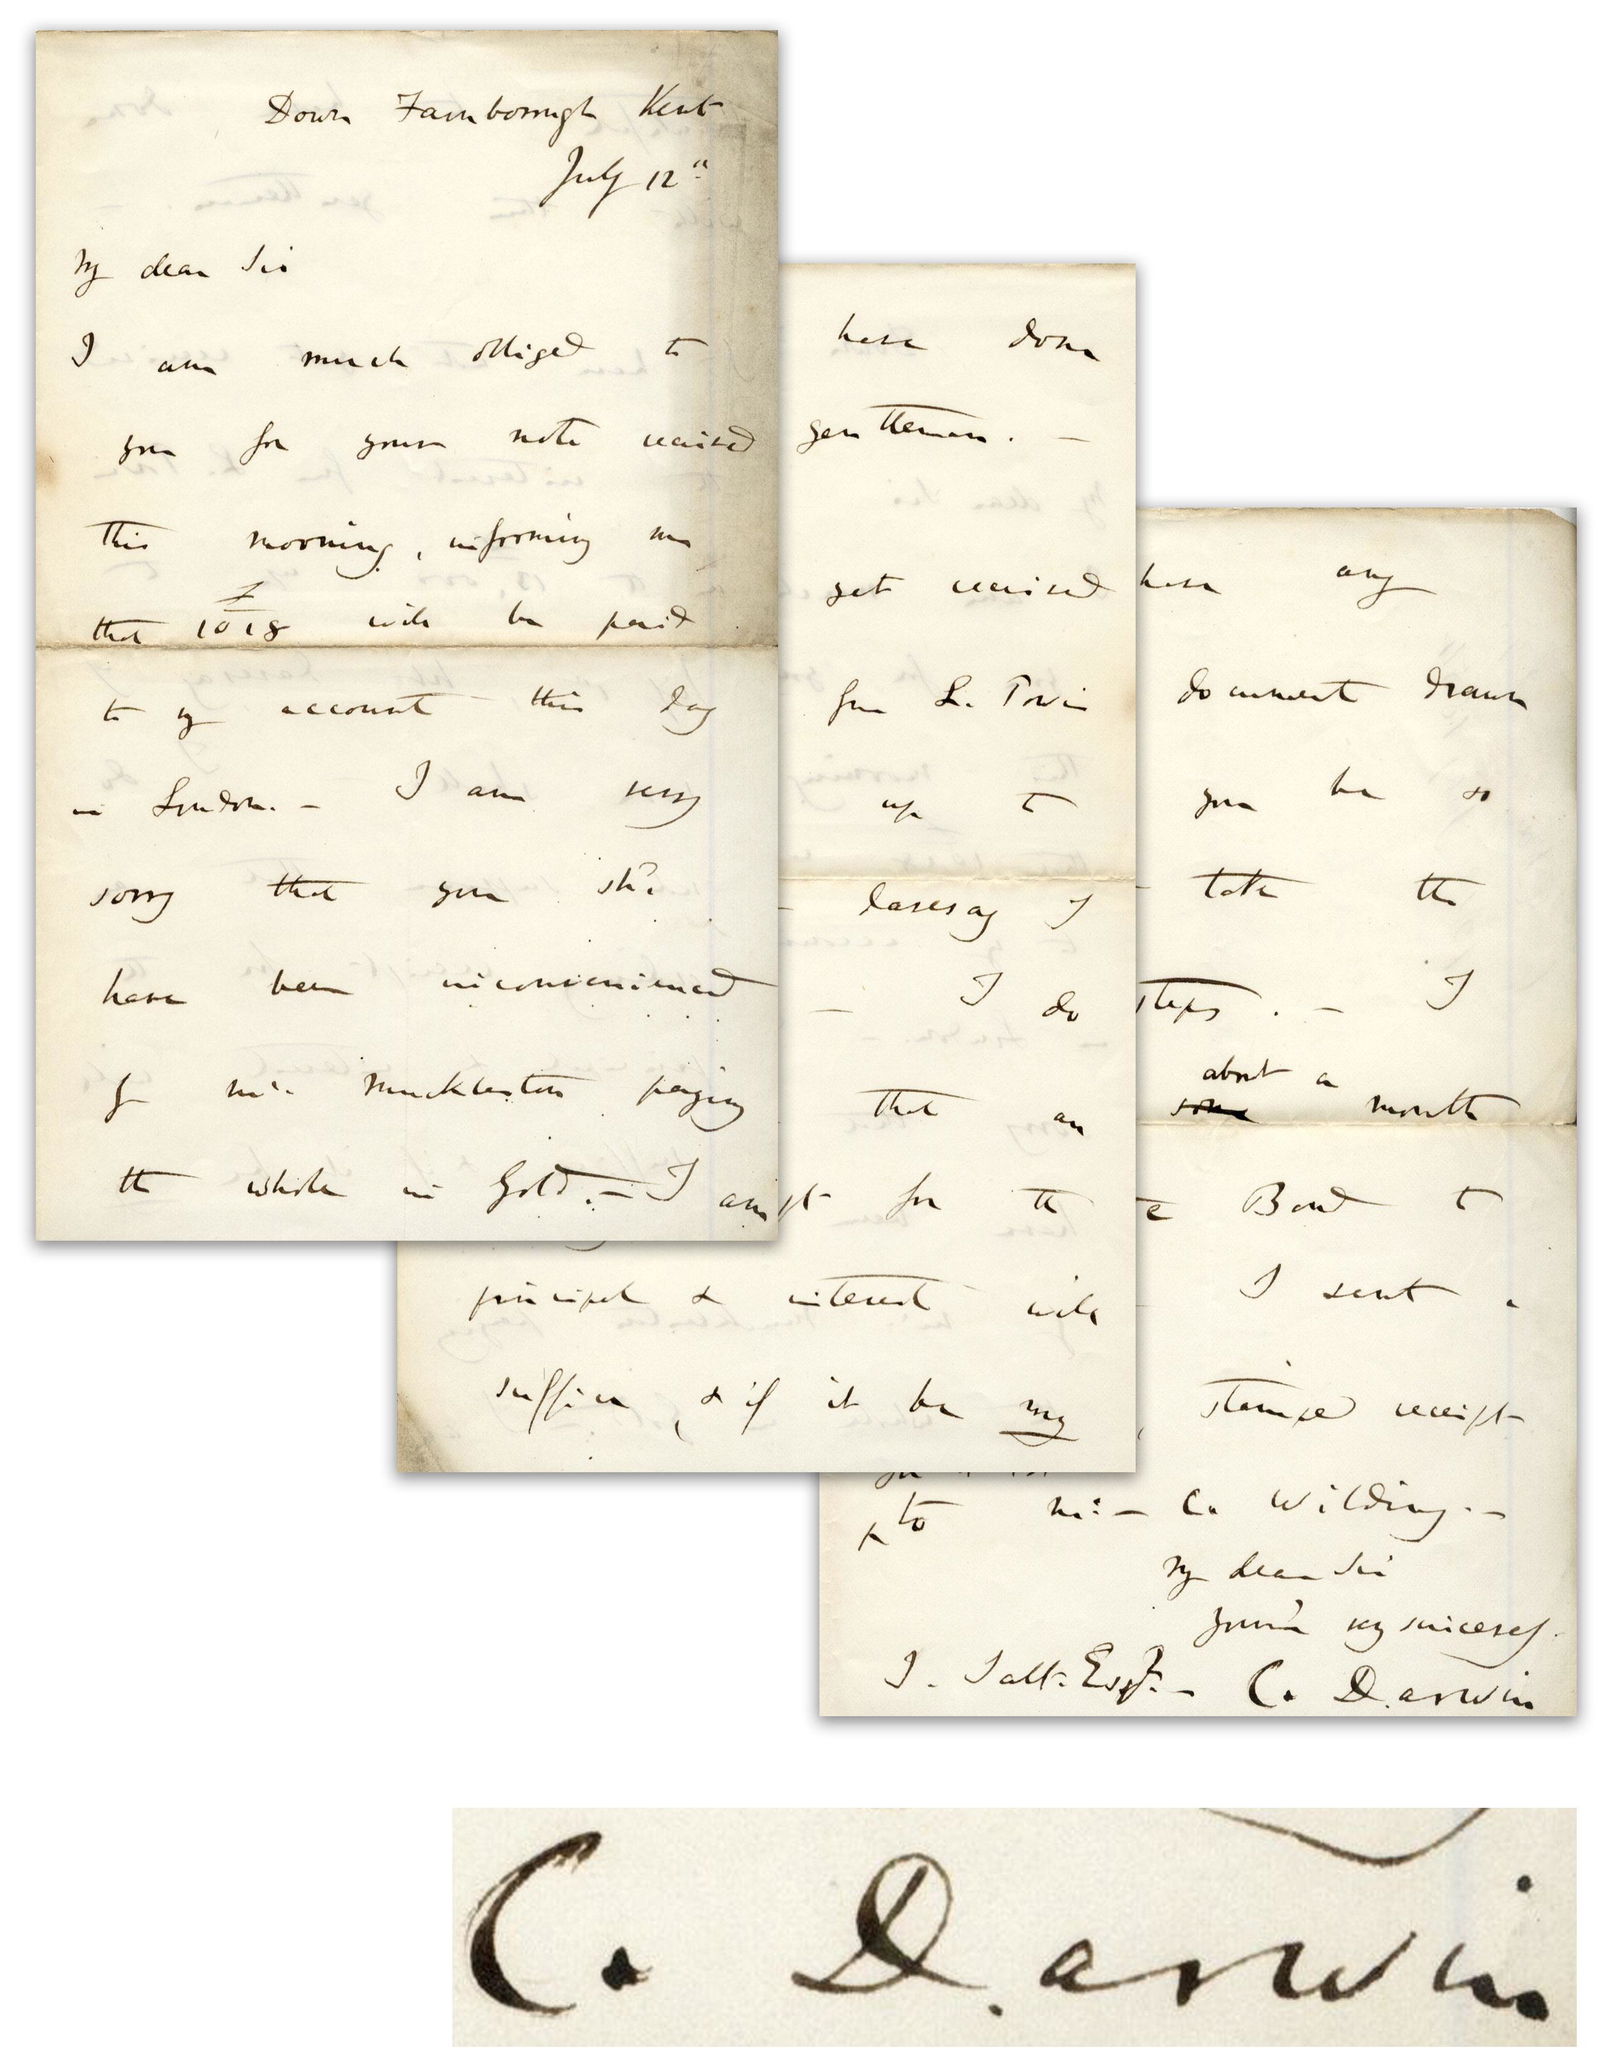 Down Farnborough Kent
July 12th
My dear Sir
I am much obliged to
you for your note received
this morning, informing me
that £1018 will be paid
to my account this day
in London. — I am very
sorry that you shd.
have been inconvenienced
by Mr. Muckleston paying
the whole in Gold. — I am
have done
gentleman. —
yet received
for L. Powis
up to
— daresay I
— I do
that an
for the
principal & interest will
suffice, & if it be my
have any
document drawn
you be so
take the
steps. — I
about a
some month
Bond to
I sent a
stamped receipt
to Mr. — C. Wilding. —
My dear Sir
Yours very sincerely
J. Salt. Esqr. — C. Darwin
C. Darwin